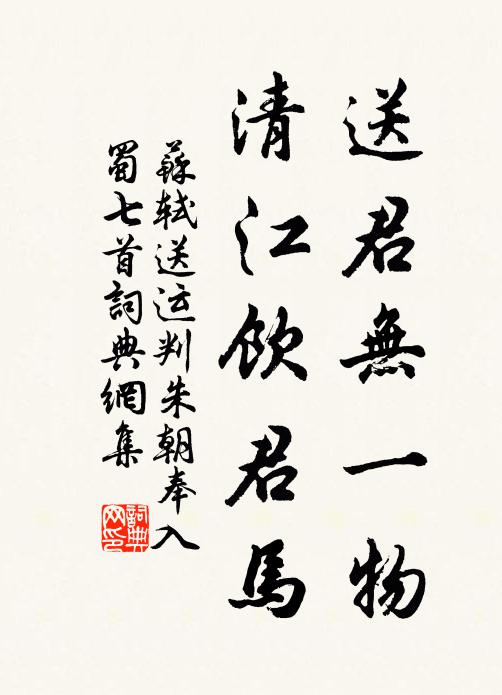 送君無一物
清江飲君馬
蘇軾送运判朱朝奉入
蜀七首詞典網集
詞典
网印